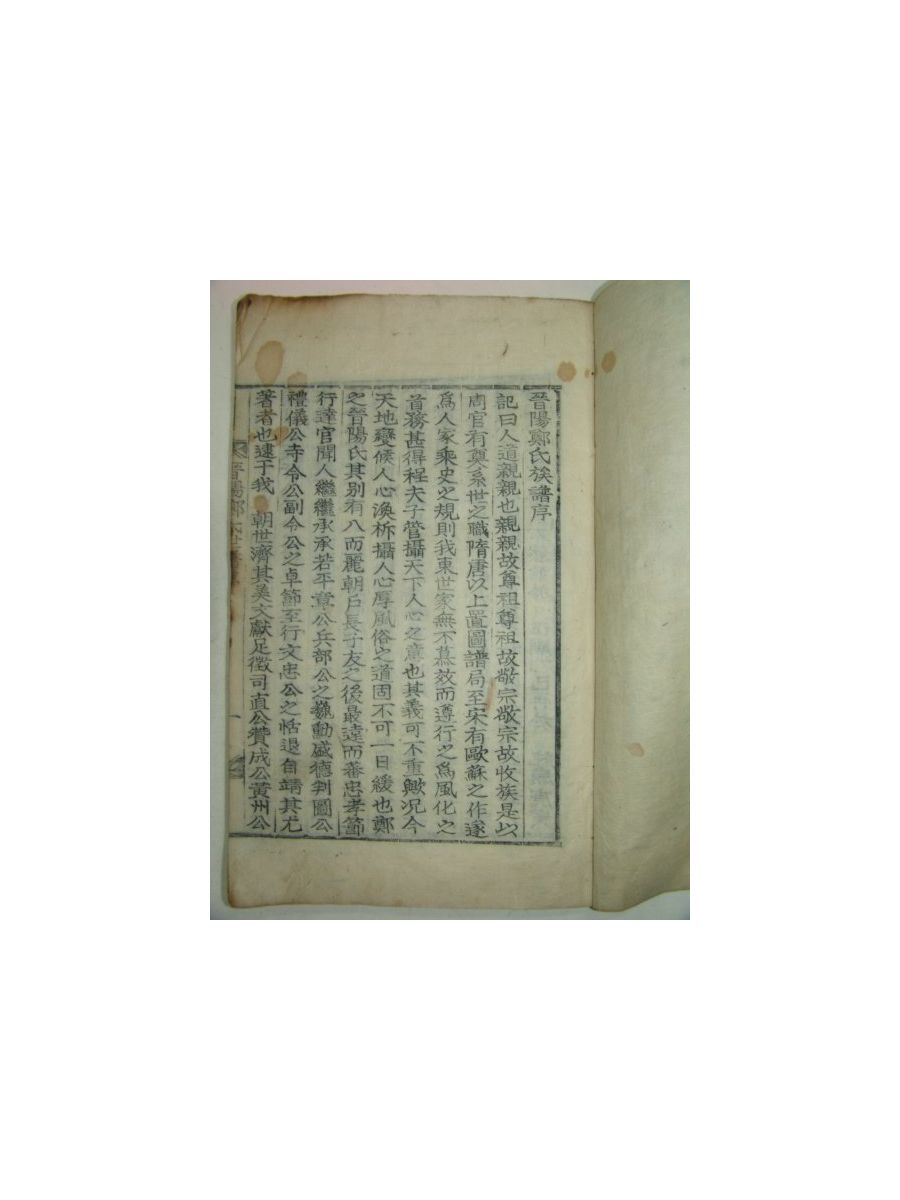 晉陽鄭氏族譜序
記曰人道親親也親親故尊祖尊祖故敬宗敬宗故收族是以
周官有奠系世之職隋唐以上置圖譜局至宋有歐蘇之作遂
爲人家乘史之規則我東世家無不慕效而遵行之爲風化之
首務甚得程夫子管攝天下人心之意也其義可不重歟况今
天地變候人心渙柝攝人心厚風俗之道固不可一日緩也鄭
之晉陽氏其別有八而麗朝戶長子友之後最遠而蕃忠孝節
行達官聞人繼繼承承若平章公兵部公之巍勳盛德判圖公
禮儀公寺令公副令公之卓節至行文忠公之恬退自靖其尤
著者也逮于我 朝世濟其美文獻足徵司直公贊成公黃州公
晉陽鄭氏
一